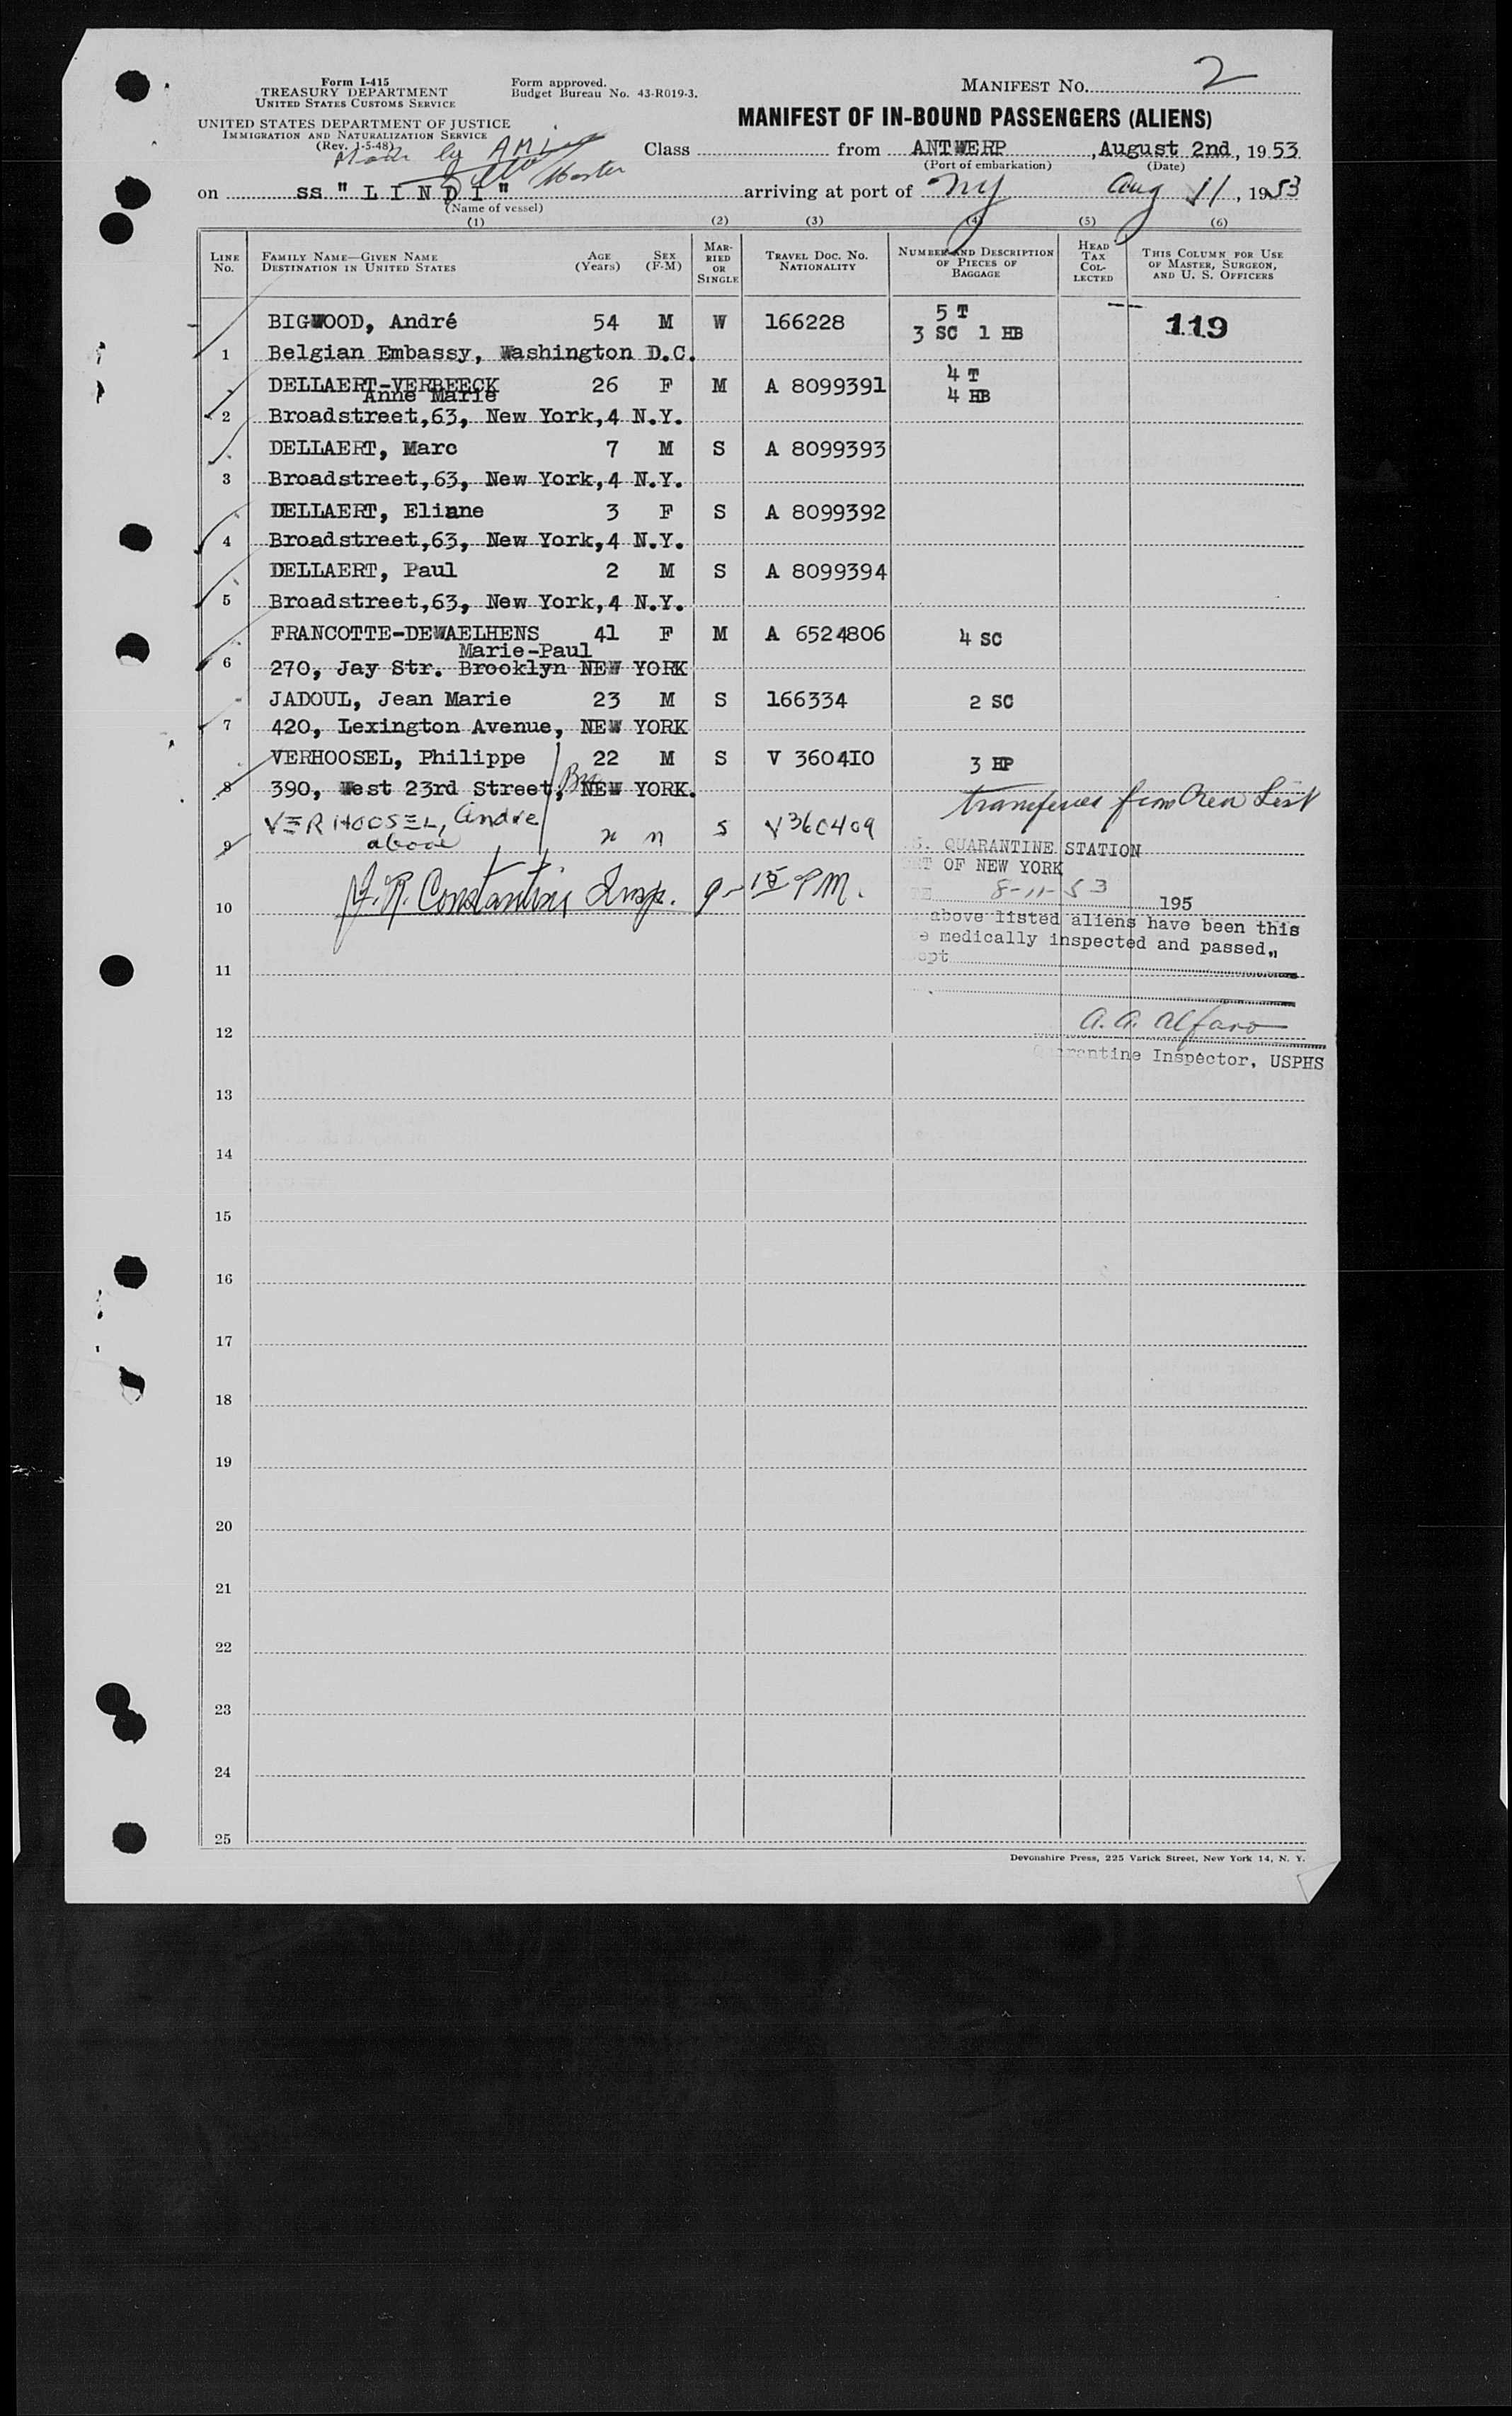 Form I-415
TREASURY DEPARTMENT
UNITED STATES CUSTOMS SERVICE
Form approved.
Budget Bureau No. 43-R019-3.
MANIFEST No. 2
UNITED STATES DEPARTMENT OF JUSTICE
IMMIGRATION AND NATURALIZATION SERVICE
(Rev. 1-5-48)
MANIFEST OF IN-BOUND PASSENGERS (ALIENS)
Class from ANTWERP, August 2nd, 1953
(Port of embarkation) (Date)
by Master
on ss "LINDI" arriving at port of NY Aug 11, 1953
(Name of vessel)
(1) (2) (3) (4) (5) (6)
LINE No. FAMILY NAME—GIVEN NAME DESTINATION IN UNITED STATES AGE (Years) SEX (F-M) MARRIED OR SINGLE TRAVEL DOC. NO. NATIONALITY NUMBER AND DESCRIPTION OF PIECES OF BAGGAGE HEAD TAX COLLECTED THIS COLUMN FOR USE OF MASTER, SURGEON, AND U. S. OFFICERS
BIGWOOD, André 54 M W 166228 5 T 3 SC 1 HB 119
1 Belgian Embassy, Washington D.C.
DELLAERT-VERBEECK 26 F M A 8099391 4 T
Anne Marie 4 HB
2 Broadstreet,63, New York,4 N.Y.
DELLAERT, Marc 7 M S A 8099393
3 Broadstreet,63, New York,4 N.Y.
DELLAERT, Eliane 3 F S A 8099392
4 Broadstreet,63, New York,4 N.Y.
DELLAERT, Paul 2 M S A 8099394
5 Broadstreet,63, New York,4 N.Y.
FRANCOTTE-DEWAELHENS 41 F M A 6524806 4 SC
Marie-Paul
6 270, Jay Str. Brooklyn NEW YORK
JADOUL, Jean Marie 23 M S 166334 2 SC
7 420, Lexington Avenue, NEW YORK
VERHOOSEL, Philippe 22 M S V 360410 3 HP
8 390, West 23rd Street, NEW YORK.
VERHOOSEL, Andre S V360409 from Crew List
9 above
S. QUARANTINE STATION
RT OF NEW YORK
TE 8-11-53 195
above listed aliens have been this
e medically inspected and passed,
ept
10 J. R. Constantin, Insp. 9-15 PM.
11
12 A. A. Alfaro
Quarantine Inspector, USPHS
13
14
15
16
17
18
19
20
21
22
23
24
25
Devonshire Press, 225 Varick Street, New York 14, N. Y.